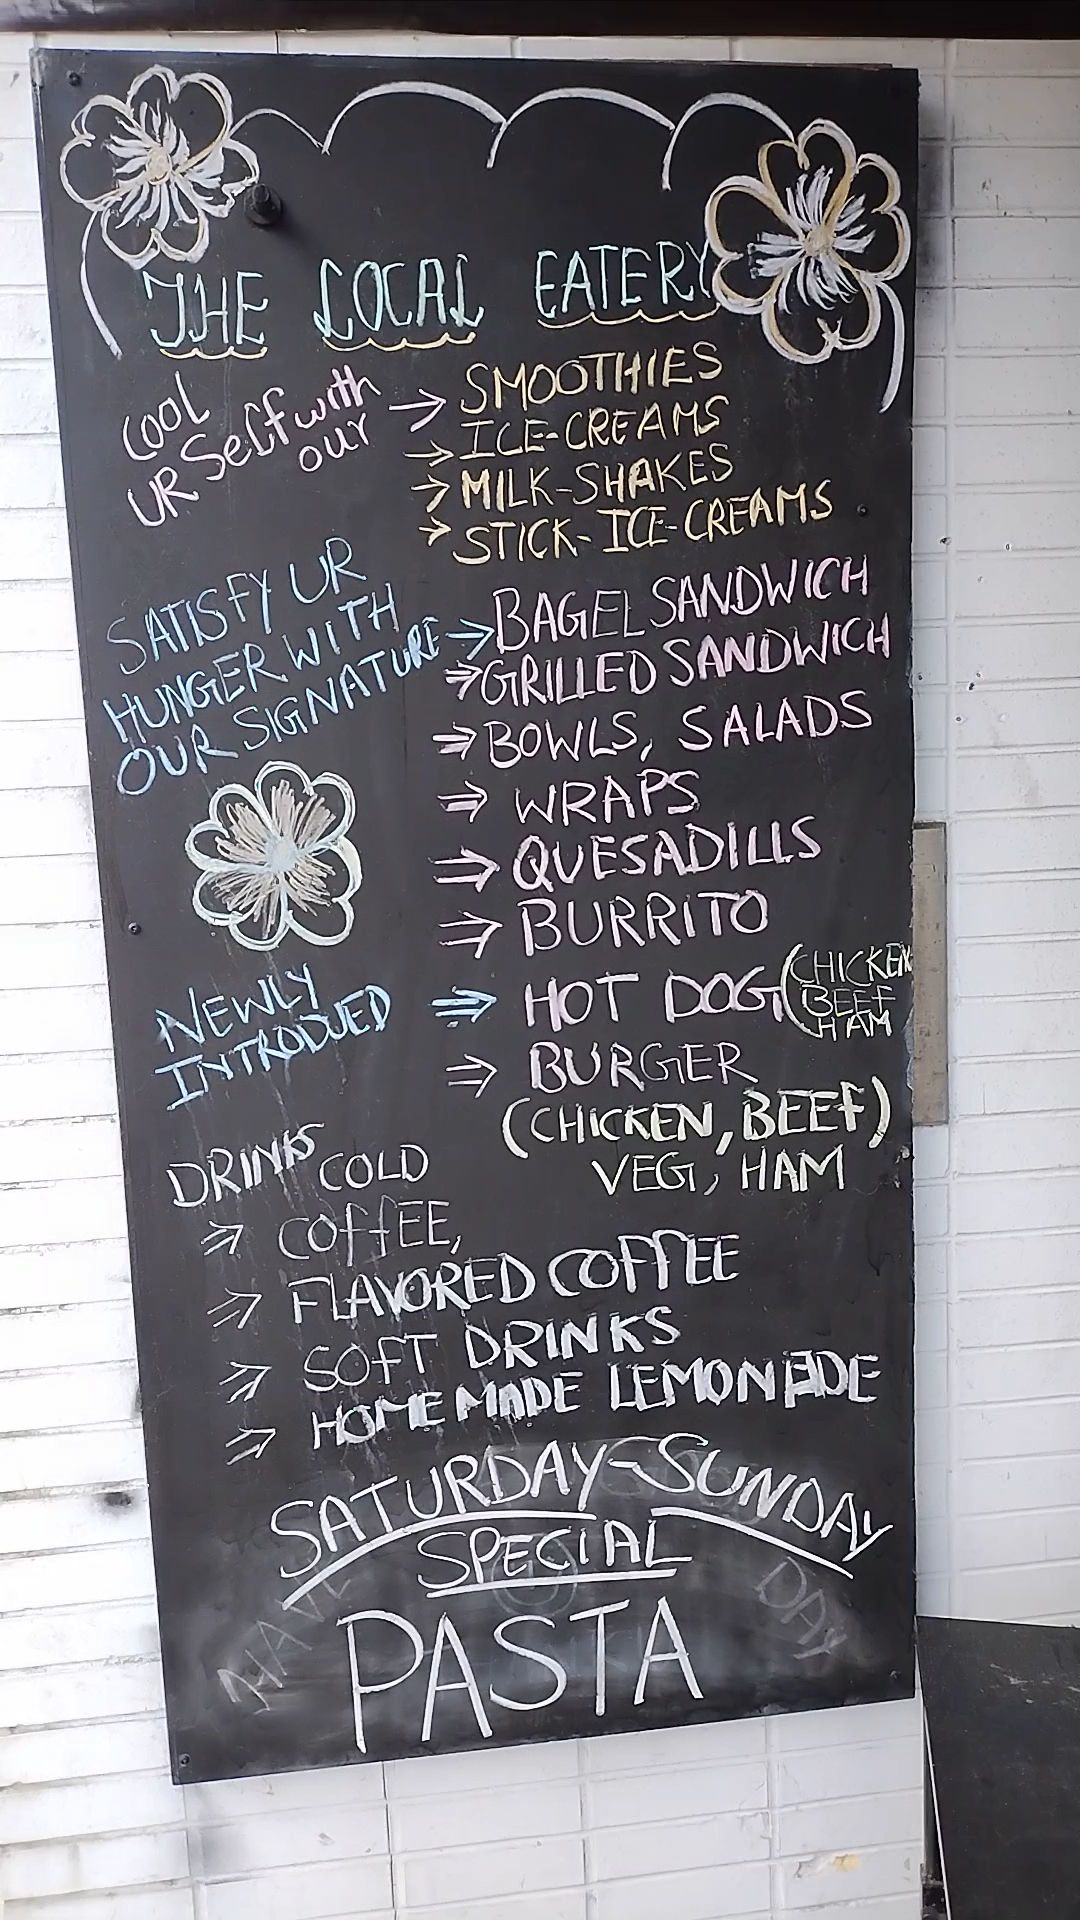 THE LOCAL EATERY
COOL
UR Self with
our
→ SMOOTHIES
→ ICE-CREAMS
→ MILK-SHAKES
→ STICK-ICE-CREAMS
SATISFY UR
HUNGER WITH
OUR SIGNATURE
⇒ BAGEL SANDWICH
⇒ GRILLED SANDWICH
⇒ BOWLS, SALADS
⇒ WRAPS
⇒ QUESADILLS
⇒ BURRITO
NEWLY
INTRODUED
⇒ HOT DOG (CHICKEN
BEEF
HAM
⇒ BURGER
(CHICKEN, BEEF)
VEG, HAM
DRINKS
COLD
⇒ COFFEE,
⇒ FLAVORED COFFEE
⇒ SOFT DRINKS
⇒ HOME MADE LEMONADE
SATURDAY-SUNDAY
SPECIAL
PASTA
DAY